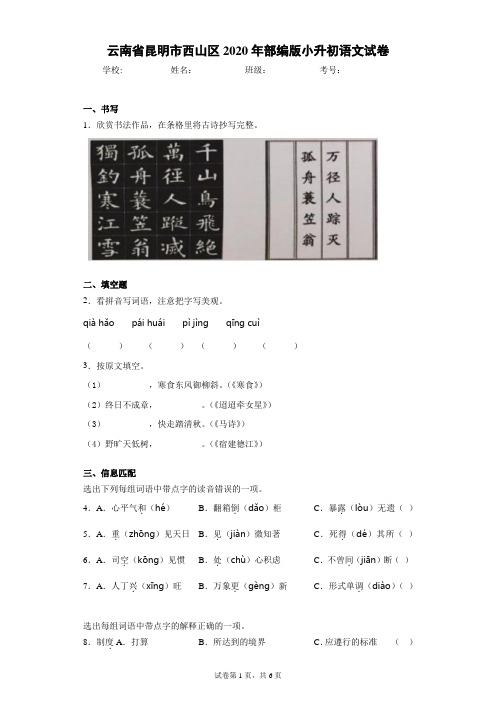 云南省昆明市西山区 2020 年部编版小升初语文试卷
学校: 姓名: 班级: 考号:
一、书写
1．欣赏书法作品，在条格里将古诗抄写完整。
千山鳥飛絶
萬徑人蹤滅
孤舟蓑笠翁
獨釣寒江雪
万径人踪灭
孤舟蓑笠翁
二、填空题
2．看拼音写词语，注意把字写美观。
qià hǎo pái huái pì jìng qīng cuì
( ) ( ) ( ) ( )
3．按原文填空。
（1）__________，寒食东风御柳斜。（《寒食》）
（2）终日不成章，__________。（《迢迢牵女星》）
（3）__________，快走踏清秋。（《马诗》）
（4）野旷天低树，__________。（《宿建德江》）
三、信息匹配
选出下列每组词语中带点字的读音错误的一项。
4．A．心平气和（hé） B．翻箱倒（dǎo）柜 C．暴露（lòu）无遗（ ）
5．A．重（zhōng）见天日 B．见（jiàn）微知著 C．死得（dé）其所（ ）
6．A．司空（kōng）见惯 B．处（chù）心积虑 C．不曾间（jiān）断（ ）
7．A．人丁兴（xīng）旺 B．万象更（gèng）新 C．形式单调（diào）（ ）
选出每组词语中带点字的解释正确的一项。
8．制度 A．打算 B．所达到的境界 C.应遵行的标准 （ ）
试卷第 1 页，共 6 页